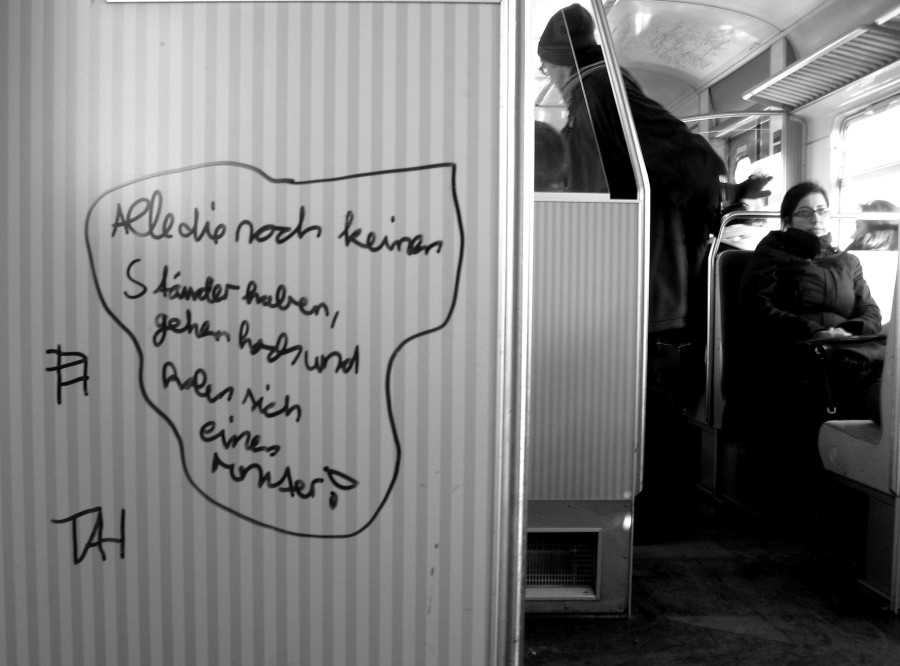 Alle die noch keinen
Ständer haben,
gehen hoch und
holen sich
einen
runter!
TAH